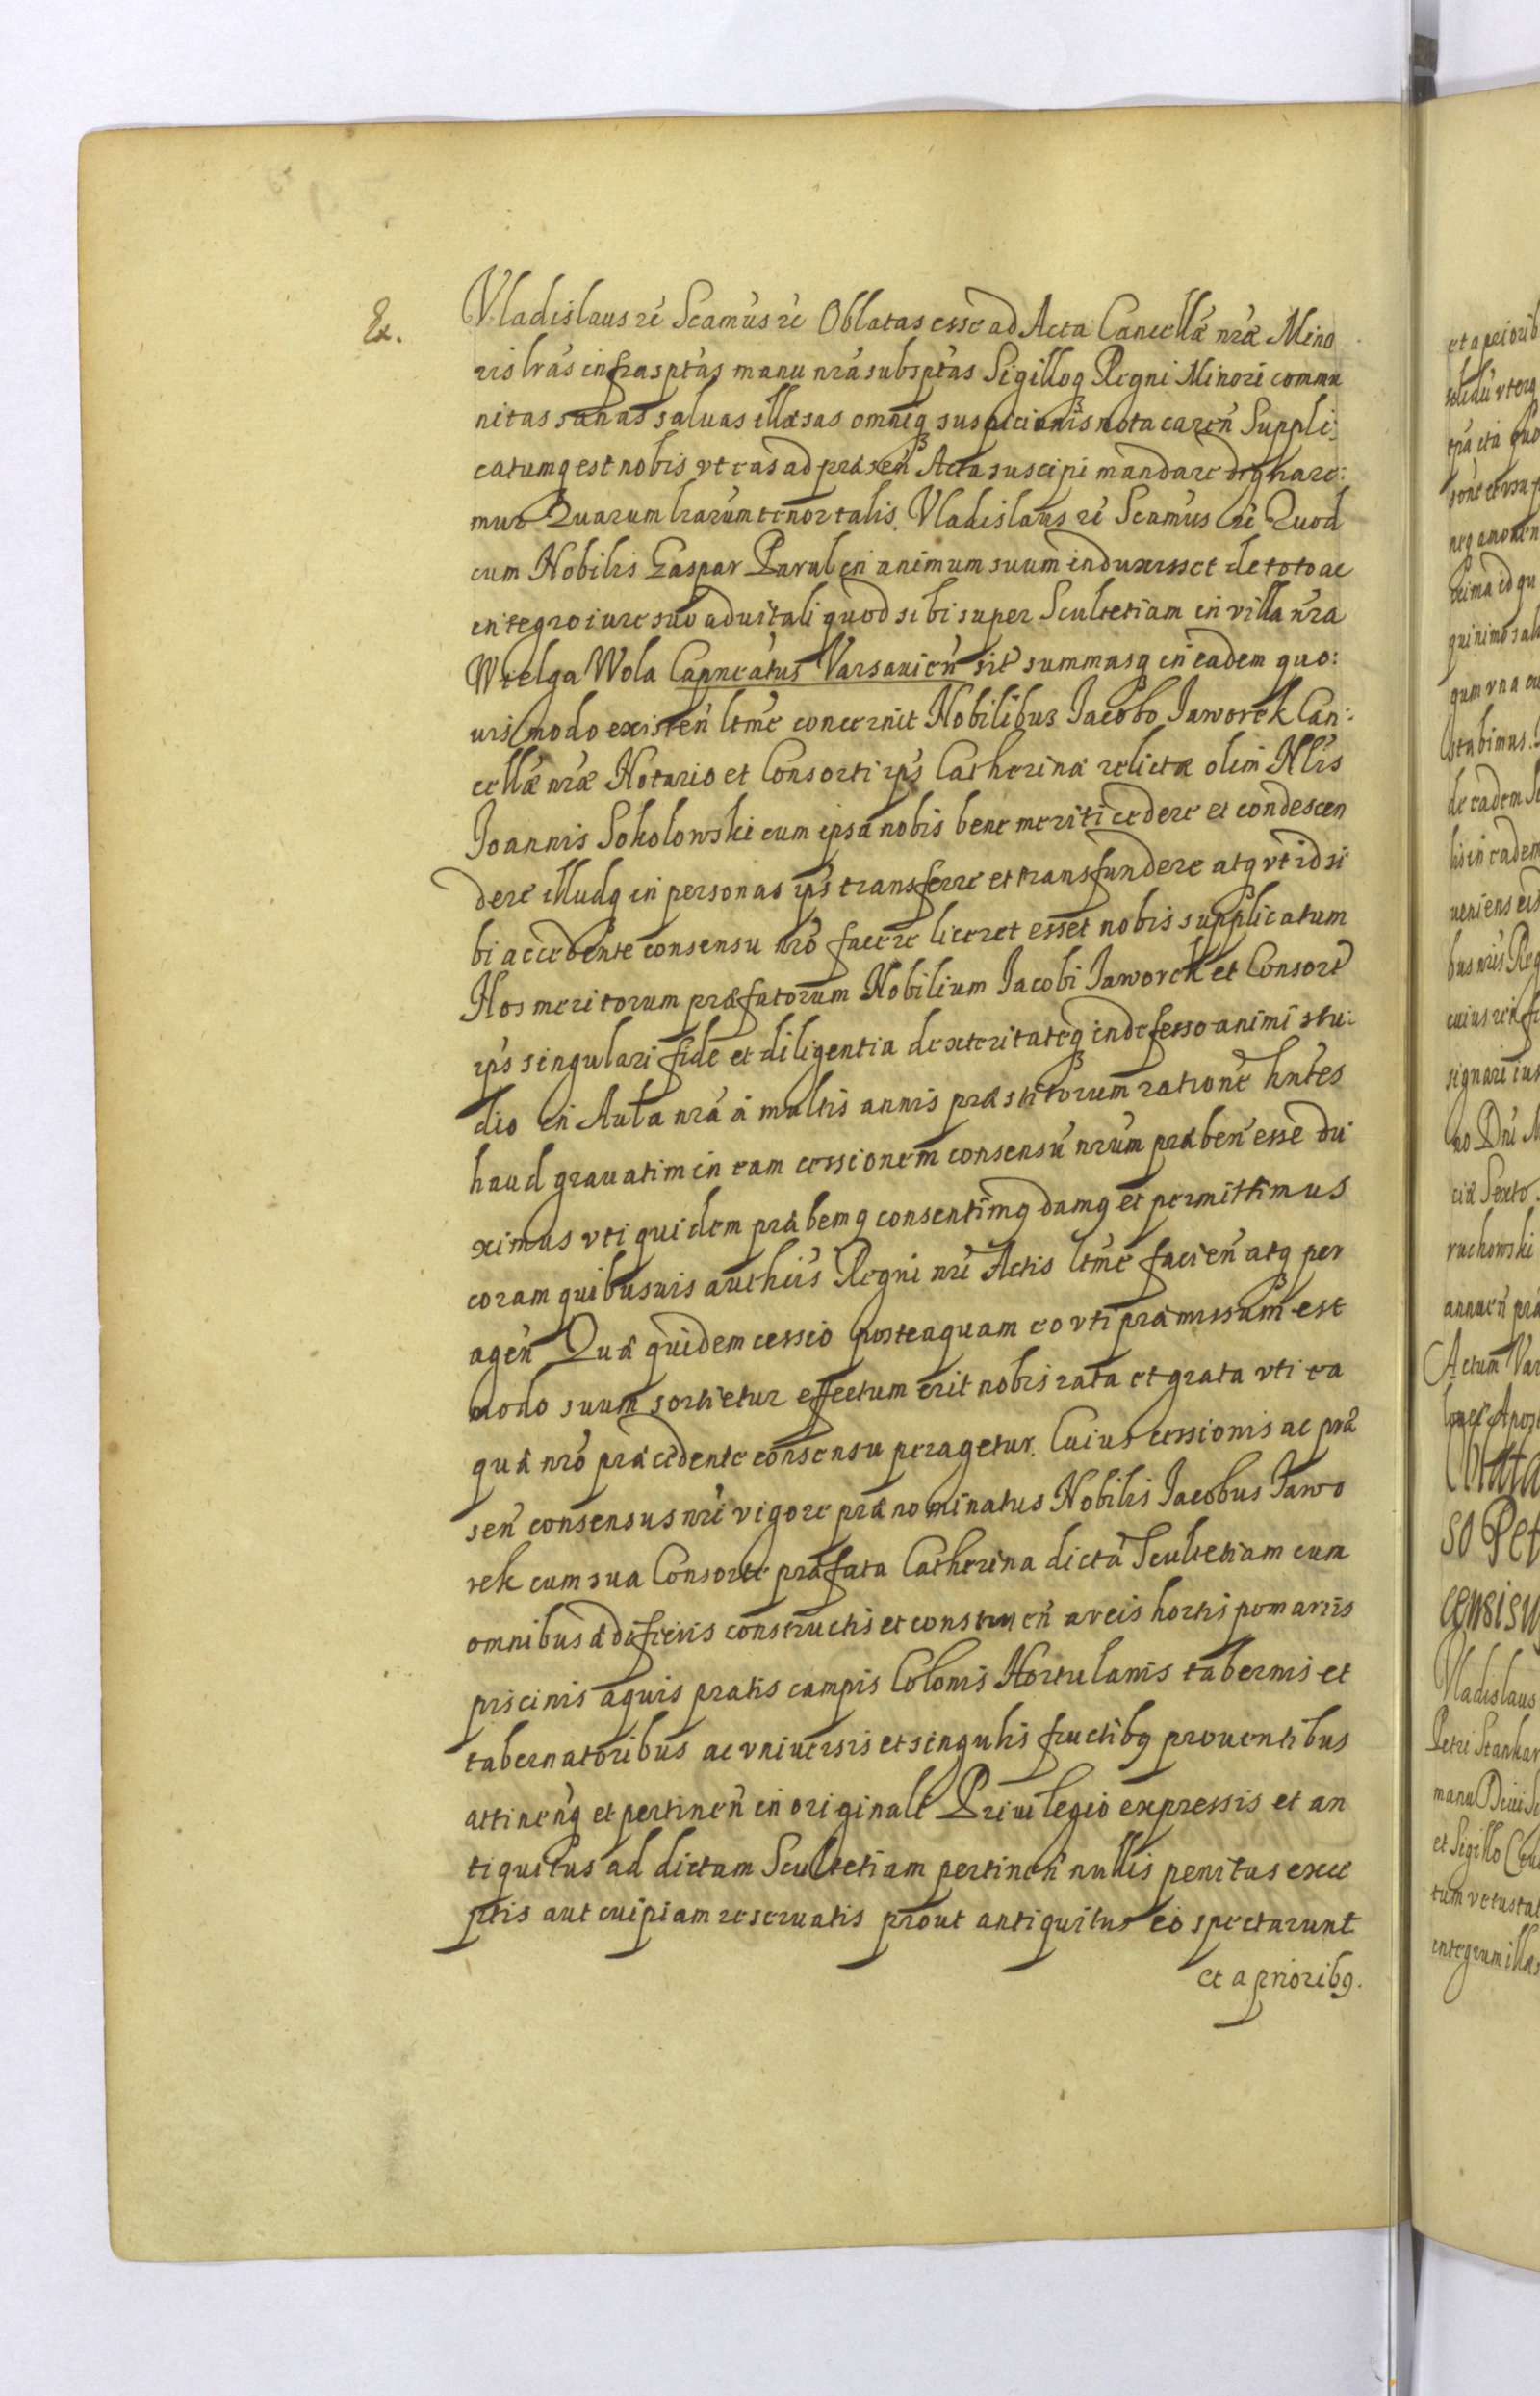 Ex.
Vladislaus rē Scamūs rē Oblatas esse ad Acta Cancellæ nrǽ Mino
ris lrās infrasptās manu nrā subsptās Sigilloq Regni Minori commu
nitas sanas saluas illæsas omniq suspicionis nota caren̄ Suppli:
catumq est nobis vt eas ad præsen̄ Acta suscipi mandare dignare:
mur Quarum lrarūm tenor talis. Vladislaus rē Scamūs rē Quod
cum Nobilis Gaspar Parul in animum suum induxisset de toto ac
integro iure suo aduitali quod sibi super Scultetiam in villa nrā
Wielga Wola Capneātus Varsauien̄ sit̄ summasq in eadem quo:
uis modo existen̄ ltmē concernit Nobilibus Jacobo Jaworek Can:
cellæ nræ Notario et Consorti ip̄s Catherinæ relictæ olim Nlis̄
Joannis Sokolowski cum ipsa nobis bene meriti cedere et condescen
dere illudq in personas ip̄s transferre et transfundere atq vt id si
bi accedente consensu nrō facere liceret esset nobis supplicatum
Nos meritorum præfatorum Nobilium Jacobi Jaworek et Consort̄
ip̄s singulari fide et diligentia dexteritateq indefesso animi stu:
dio in Aula nrā a multis annis præstitorum rationē hn̄tes
haud grauatim in eam cessionem consensū nrūm præben̄ esse du
ximus vti quidem præbemq consentimq damq et permittimus
coram quibusuis autheīs Regni nrī Actis ltmē facien̄ atq per
agen̄ Quæ quidem cessio posteaquam eo vti præmissum est
modo suum sortietur effectum erit nobis rata et grata vti ea
quæ nrō præcedente consensu peragetur. Cuius cessionis ac præ
sen̄ consensus nrī vigore prænominatus Nobilis Jacobus Jawo
rek cum sua Consorte præfata Catherina dictā Scultetiam cum
omnibus ædificiis constructis et construen̄ areis hortis pomariis
piscinis aquis pratis campis Colonis Hortulanis tabernis et
tabernatoribus ac vniuersis et singulis fructibq prouentibus
attinen̄q et pertinen̄ in originali Priuilegio expressis et an
tiquitus ad dictam Scultetiam pertinen̄ nullis penitus exce
ptis aut cuipiam reseruatis prout antiquitus eo spectarunt
et a prioribq.
et a priorib
quinimo sal
stabimus.
de eadem
lis in eadem
signari ius
ciæ Sexto.
ruchowski
Actum Var
so Pet
censisu
Vladislaus
Petri Stankar
et Sigillo
tum vetustat
integrum illas